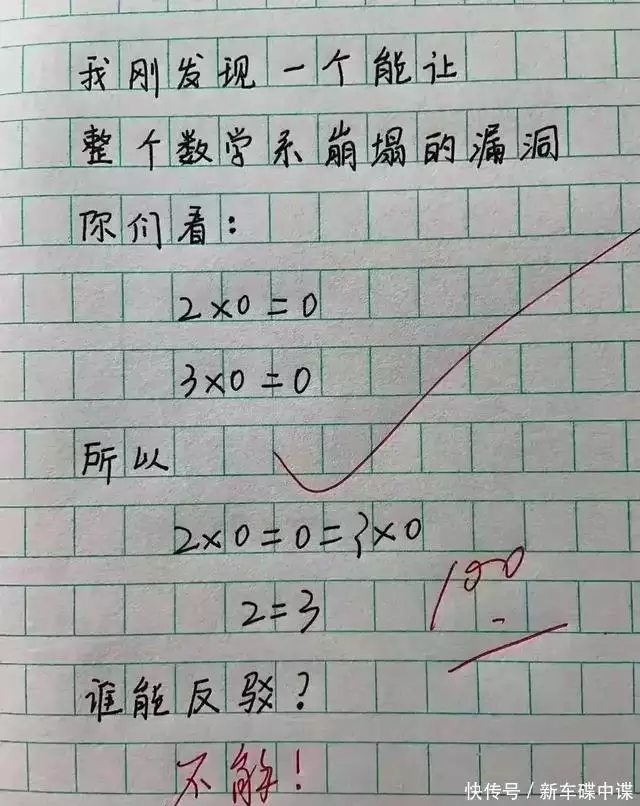 我刚发现一个能让
整个数学系崩塌的漏洞
你们看：
2×0=0
3×0=0
所以
2×0=0=3×0
2=3
100
谁能反驳？
不解！
快传号／新车碟中谍